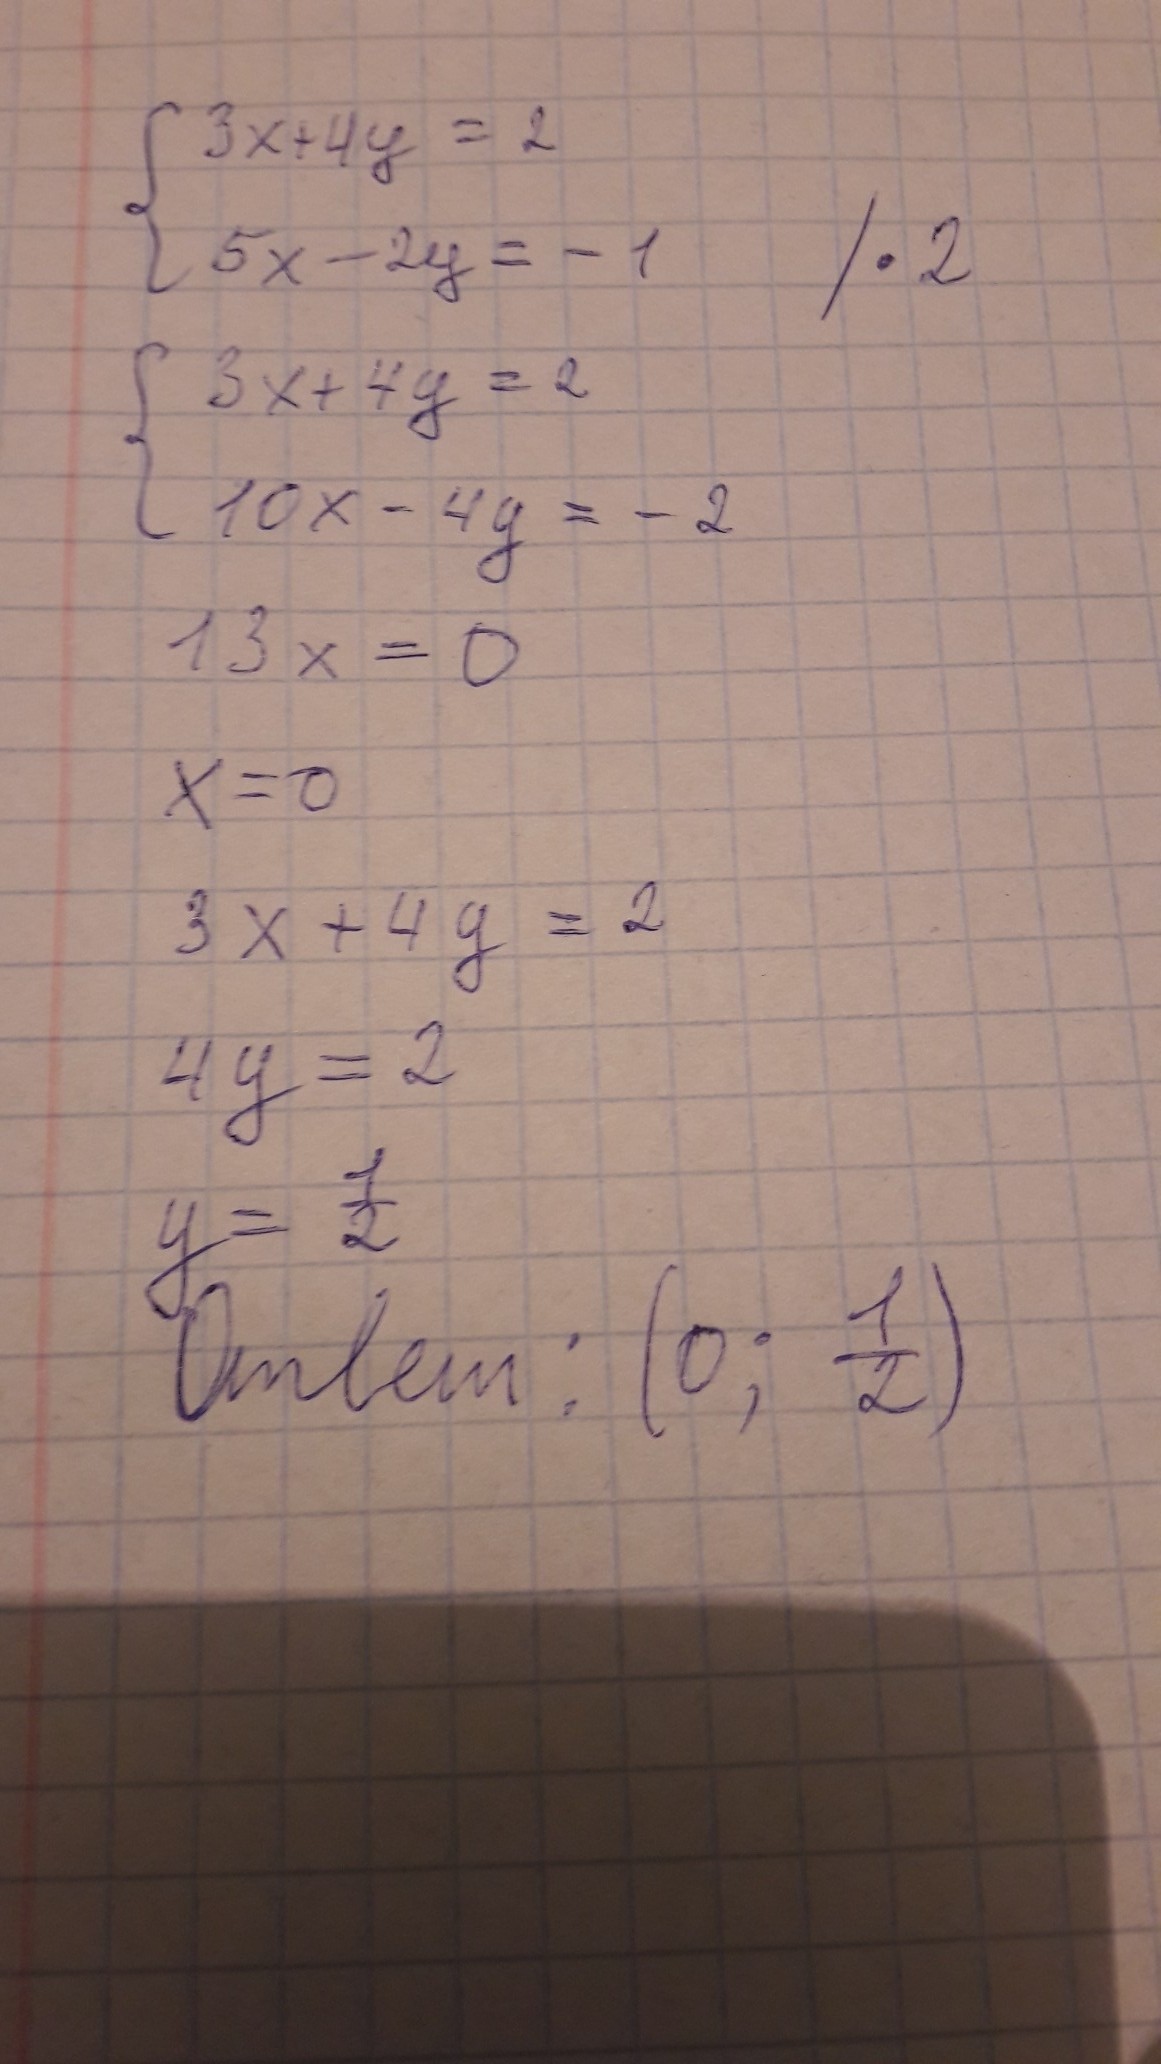 3x+4y = 2
5x-2y = -1 /·2
3x+4y = 2
10x-4y = -2
13x = 0
x=0
3x+4y = 2
4y = 2
y = 1/2
Ответ: (0; 1/2)